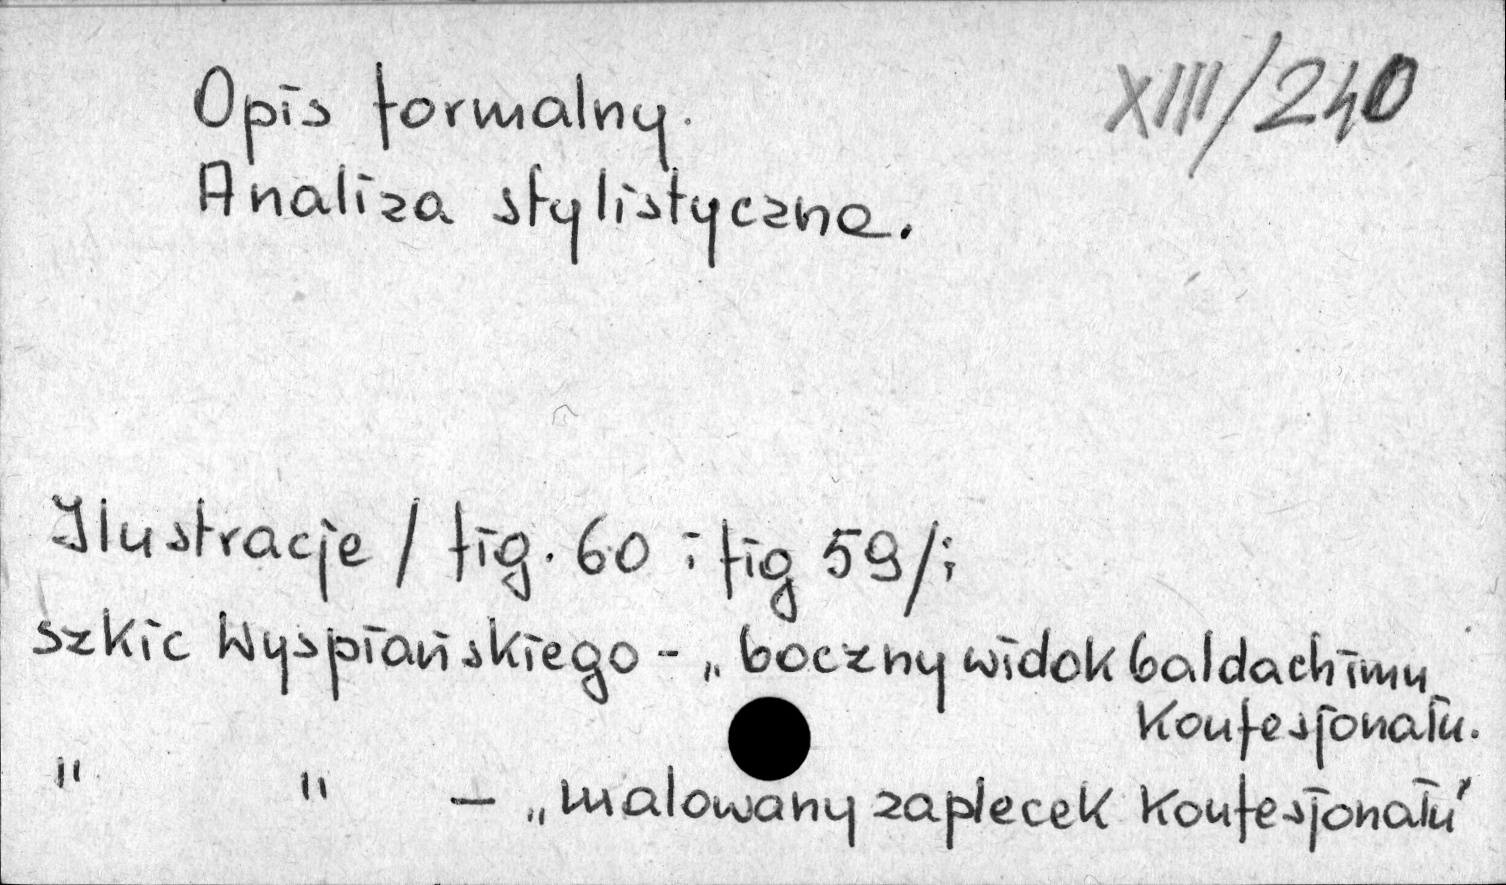 XIII/240
Opis formalny.
Analiza stylistyczne.
Ilustracje / fig. 60 i fig 59/i
szkic Wyspiańskiego - „boczny widok baldachimu
Konfesjonału.
" " — „malowany zaplecek Konfesjonału"